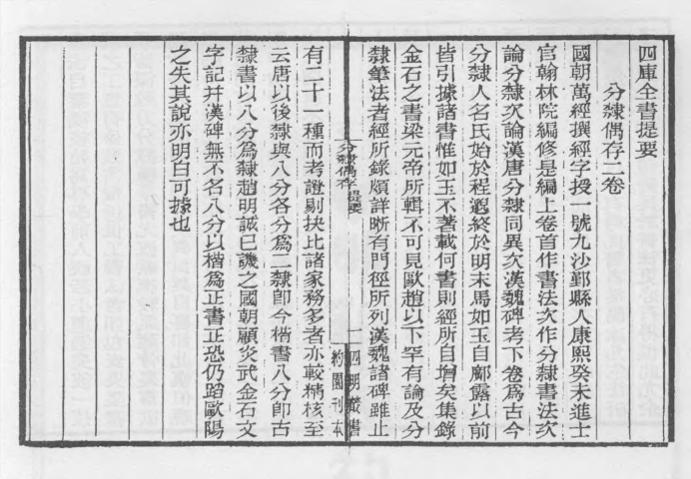 四庫全書提要
分隸偶存二卷
國朝萬經撰經字授一號九沙鄞縣人康熙癸未進士
官翰林院編修是編上卷首作書法次作分隸書法次
論分隸次論漢唐分隸同異次漢魏碑考下卷爲古今
分隸人名氏始於程邈終於明末馬如玉自鄺露以前
皆引據諸書惟如玉不著載何書則經所自增矣集錄
金石之書梁元帝所輯不可見歐趙以下罕有論及分
隸筆法者經所錄頗詳晰有門徑所列漢魏諸碑雖止
分隸偶存 提要
一
四明叢書
約園刊本
有二十一種而考證剔抉比諸家務多者亦較精核至
云唐以後隸與八分各分爲二隸卽今楷書八分卽古
隸書以八分爲隸趙明誠已譏之國朝顧炎武金石文
字記并漢碑無不名八分以楷爲正書正恐仍蹈歐陽
之失其說亦明白可據也